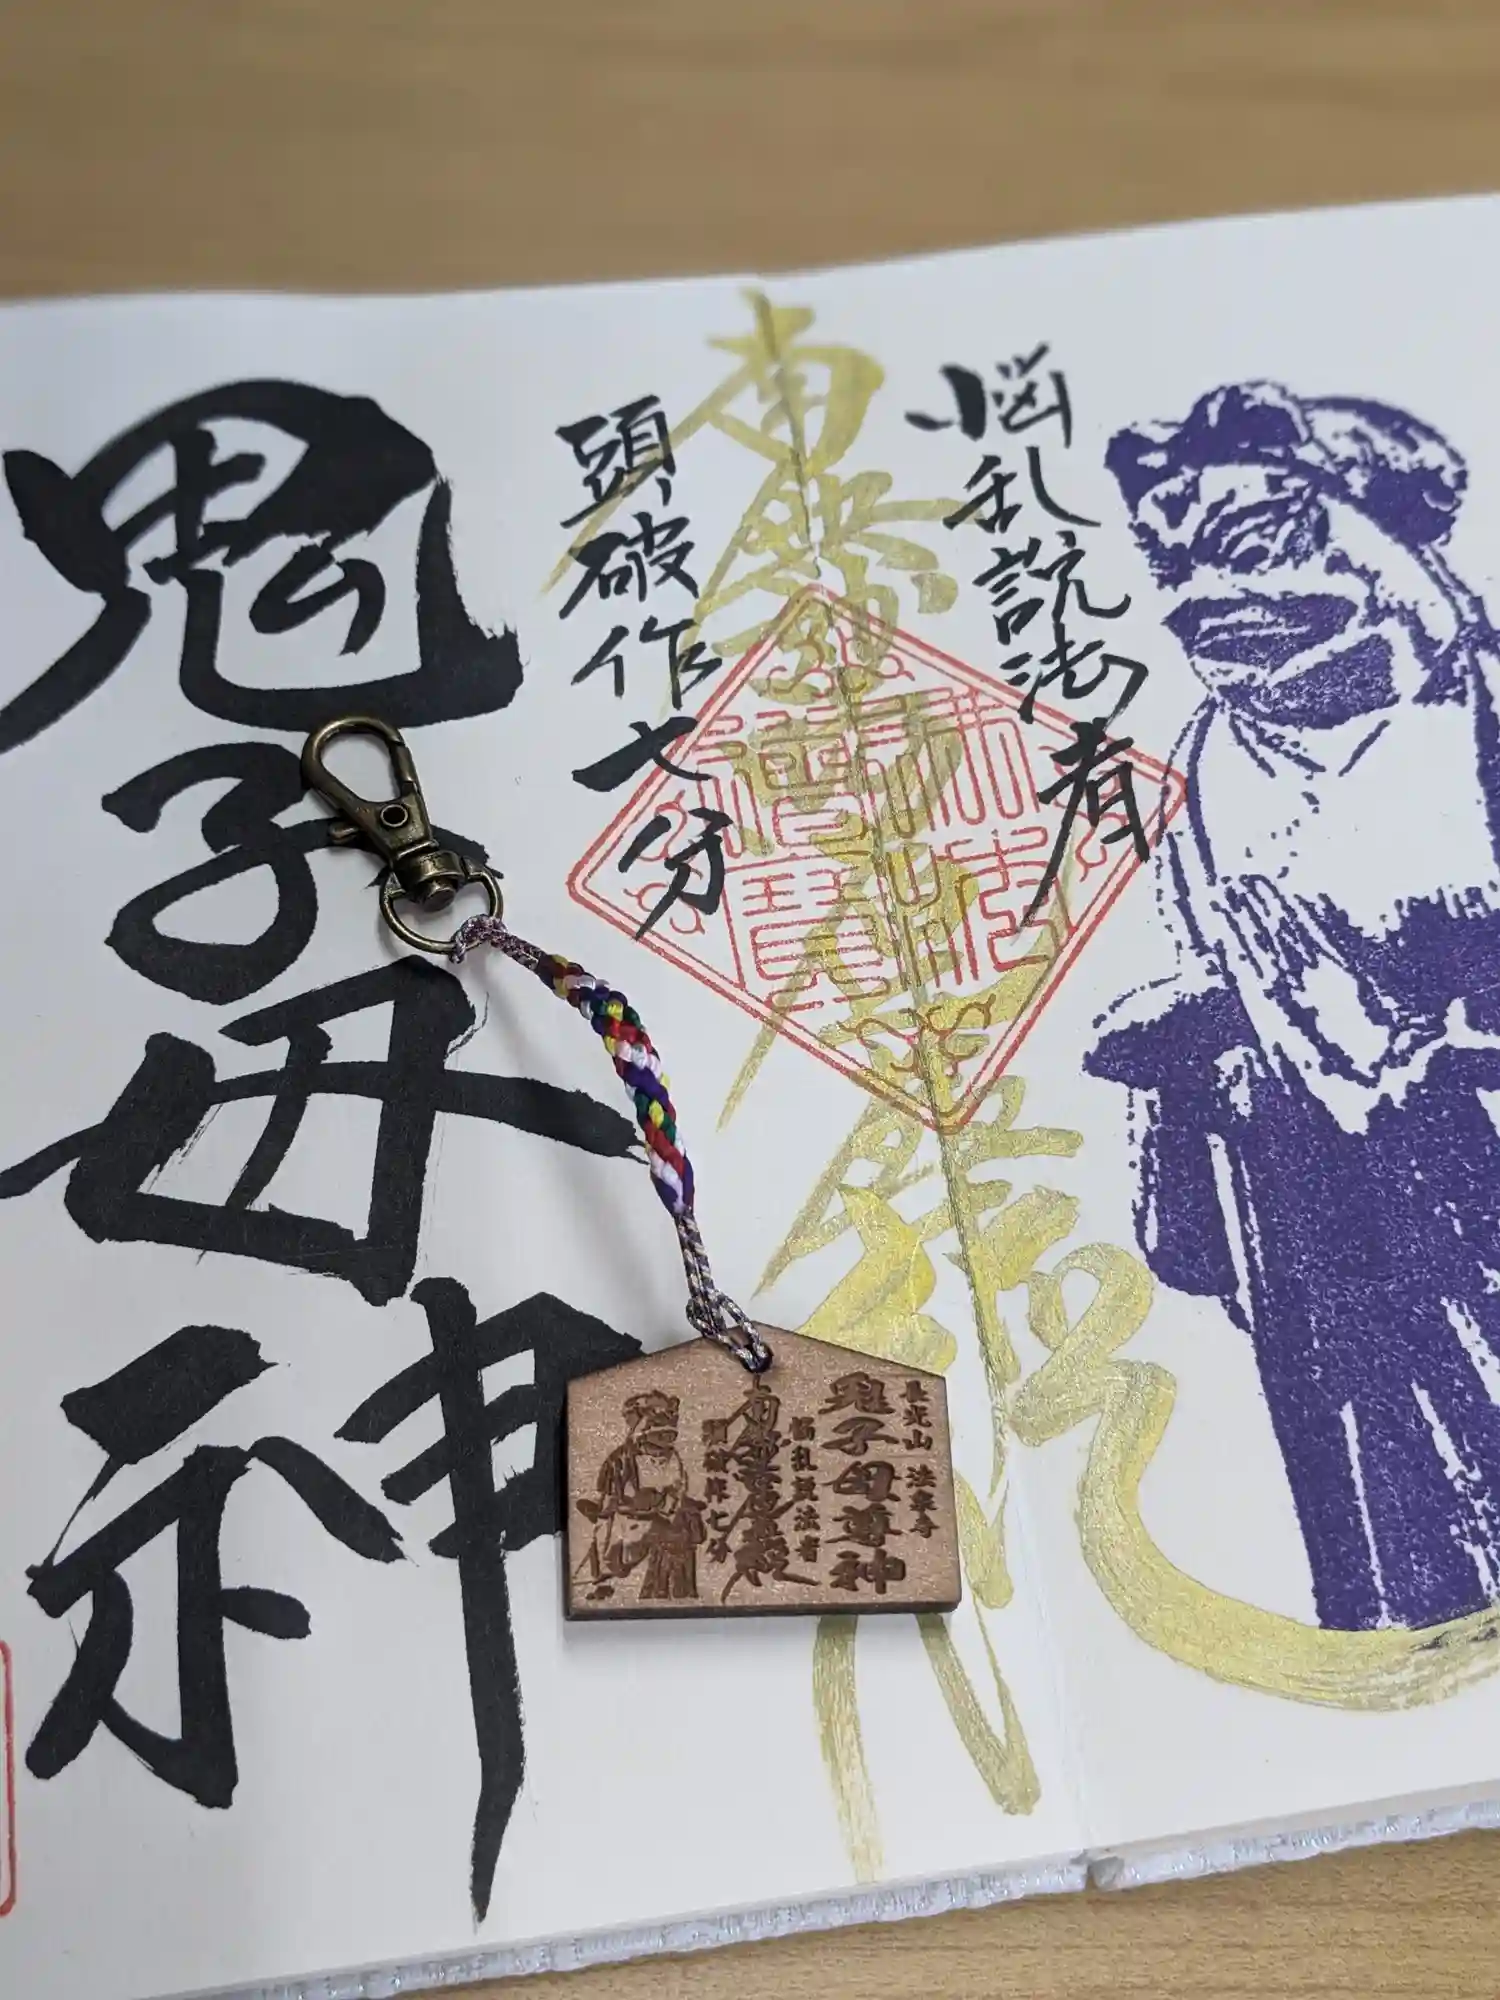 悩乱説法者
南無妙法蓮華経
頭破作七分
鬼子母神
長光山 法來寺
鬼子母尊神
悩乱説法者
南無妙法蓮華経
頭破作七分